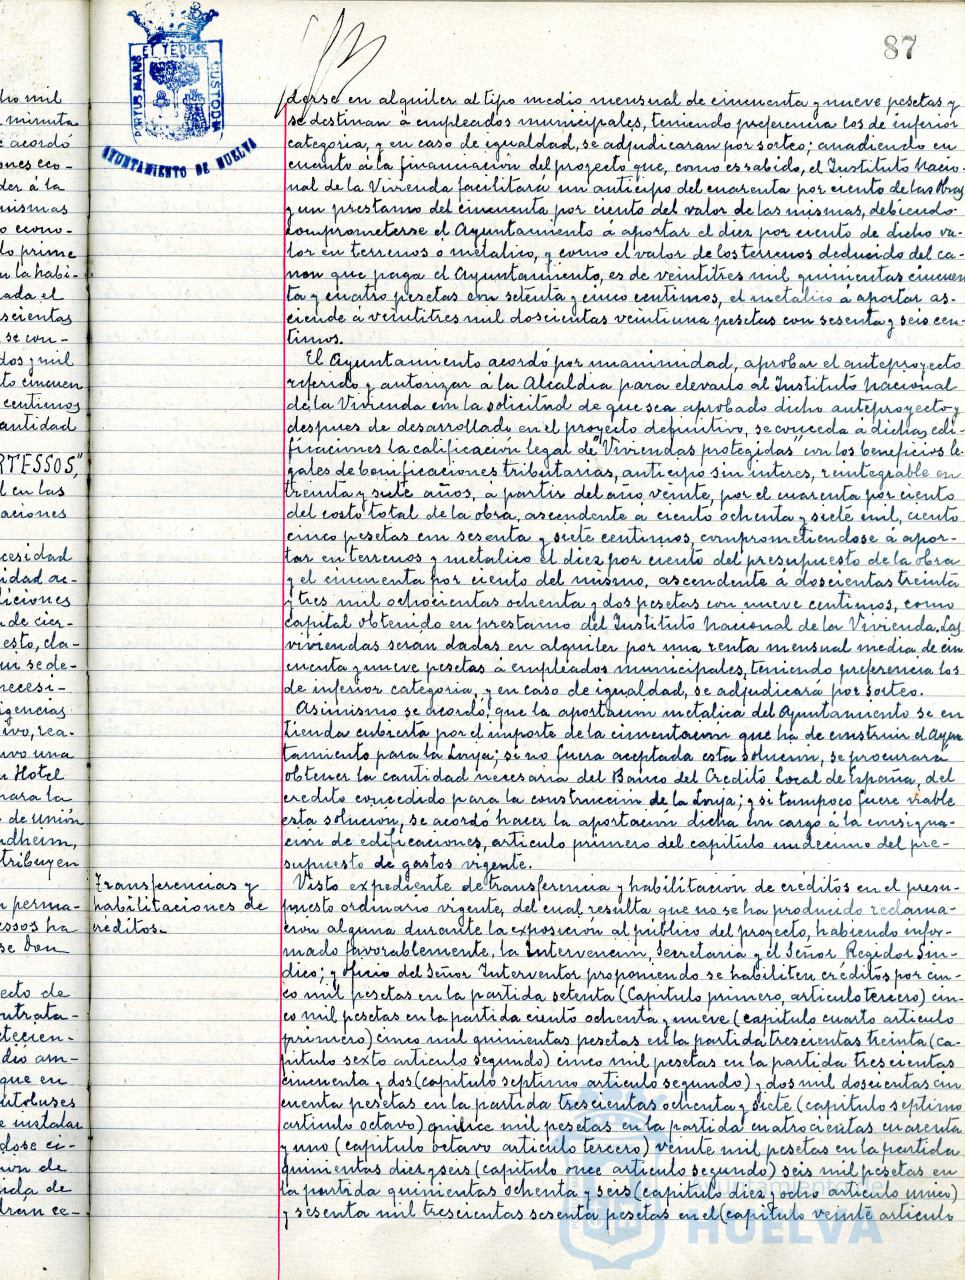 87
PORTUS MARIS ET TERRE CUSTODIA
AYUNTAMIENTO DE HUELVA
derse en alquiler al tipo medio mensual de cincuenta y nueve pesetas y
se destinan á empleados municipales, teniendo preferencia los de inferior
categoria, y en caso de igualdad, se adjudicaran por sorteo; anadiendo en
cuento á la financiación del proyecto que, como es sabido, el Instituto Nacio-
nal de la Vivienda facilitará un anticipo del cuarenta por ciento de las Obras
y un prestamo del cincuenta por ciento del valor de las mismas, debiendo
comprometerse el Ayuntamiento á aportar el diez por ciento de dicho va-
lor en terrenos ó metalico, y como el valor de los terrenos deducido del ca-
non que paga el Ayuntamiento, es de veintitres mil quinientas cincuen
ta y cuatro pesetas con setenta y cinco centimos, el metalico á aportar as-
ciende á veintitres mil doscientas veintiuna pesetas con sesenta y seis cen-
timos.
El Ayuntamiento acordó por unanimidad, aprobar el anteproyecto
referido y autorizar á la Alcaldia para elevarlo al Instituto Nacional
de la Vivienda con la solicitud de que sea aprobado dicho anteproyecto y
despues de desarrollado en el proyecto definitivo, se conceda á dichas edi-
ficaciones la calificación legal de "Viviendas protegidas" con los beneficios le-
gales de bonificaciones tributarias, anticipo sin interes, reintegrable en
treinta y siete años, á partir del año veinte, por el cuarenta por ciento
del costo total de la obra, ascendente á ciento ochenta y siete mil, ciento
cinco pesetas con sesenta y siete centimos, comprometiendose á apor-
tar en terrenos y metalico el diez por ciento del presupuesto de la obra
y el cincuenta por ciento del mismo, ascendente á doscientas treinta
y tres mil ochocientas ochenta y dos pesetas con nueve centimos, como
capital obtenido en prestamo del Instituto Nacional de la Vivienda. Las
viviendas serán dadas en alquiler por una renta mensual media de cin
cuenta y nueve pesetas á empleados municipales, teniendo preferencia los
de inferior categoria, y en caso de igualdad, se adjudicará por sorteo.
Asimismo se acordó, que la aportación metalica del Ayuntamiento se en
tienda cubierta por el importe de la cimentación que ha de construir el Ayun
tamiento para la Lonja; si no fuera aceptada esta solución, se procurará
obtener la cantidad necesaria del Banco del Credito Local de España, del
credito concedido para la construcción de la Lonja; y si tampoco fuere viable
esta solucion, se acordó hacer la aportación dicha con cargo á la consigna-
ción de edificaciones, articulo primero del capitulo undecimo del pre-
supuesto de gastos vigente.
Transferencias y
habilitaciones de
créditos.-
Visto expediente de transferencia y habilitación de créditos en el presu-
puesto ordinario vigente, del cual resulta que no se ha producido reclama-
cion alguna durante la exposicion al público del proyecto, habiendo infor-
mado favorablemente, la Intervencion, Secretaria y el Señor Regidor Sin-
dico; y oficio del Señor Interventor proponiendo se habiliten créditos por cin-
co mil pesetas en la partida setenta (Capitulo primero, articulo tercero) cin-
co mil pesetas en la partida ciento ochenta y nueve (capitulo cuarto articulo
primero) cinco mil quinientas pesetas en la partida trescientas treinta (ca-
pitulo sexto articulo segundo) cinco mil pesetas en la partida trescientas
cincuenta y dos (capitulo septimo articulo segundo) y dos mil doscientas cin
cuenta pesetas en la partida trescientas ochenta y siete (capitulo septimo
articulo octavo) quince mil pesetas en la partida cuatrocientas cuarenta
y uno (capitulo octavo articulo tercero) veinte mil pesetas en la partida
quinientas diez y seis (capitulo once articulo segundo) seis mil pesetas en
la partida quinientas ochenta y seis (capitulo diez y ocho articulo unico)
y sesenta mil trescientas sesenta pesetas en el (capitulo veinte articulo
Ayuntamiento de
HUELVA